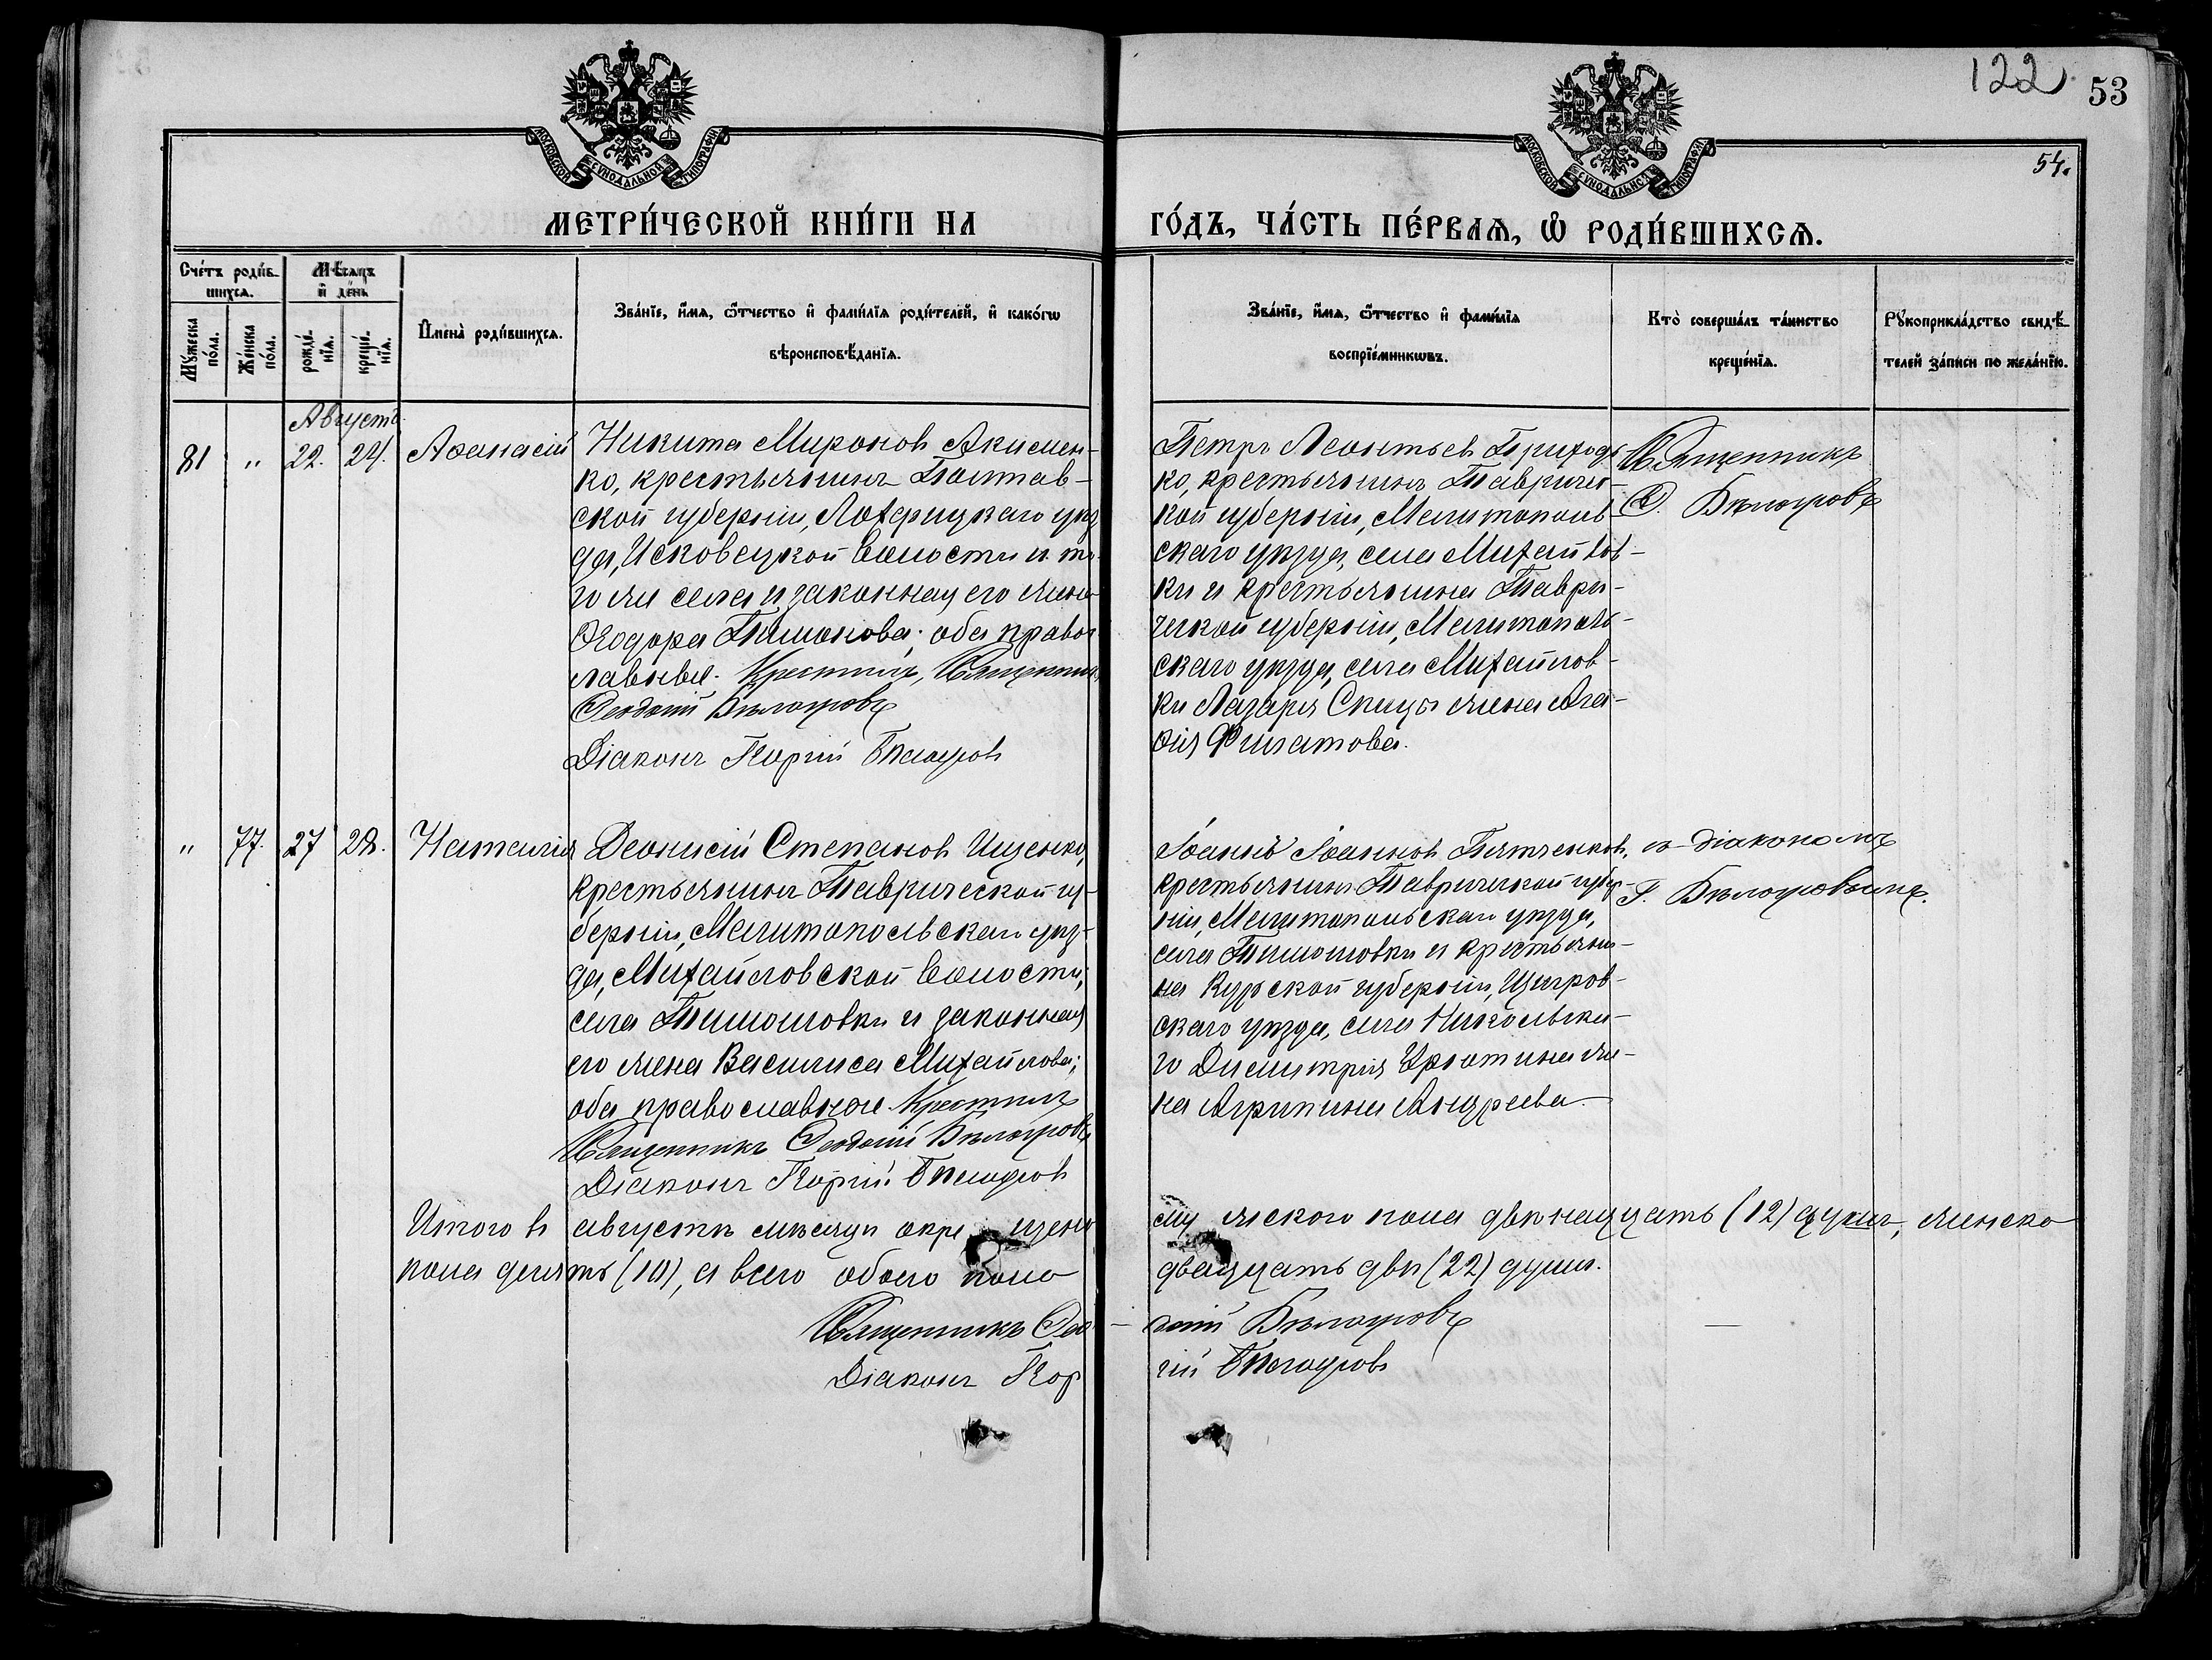 122
53
54.
МОСКОВСКОЙ СѴНОДАЛЬНОЙ ТИПОГРАФІИ
МОСКОВСКОЙ СѴНОДАЛЬНОЙ ТИПОГРАФІИ
МЕТРИ́ЧЕСКОЙ КНИ́ГИ НА
ГО́ДЪ, ЧА́СТЬ ПЕ́РВАѦ, Ѿ РОДИ́ВШИХСѦ.
Сче́тъ роди́в-
шихсѧ.
Мꙋ́жеска по́ла.
Же́нска по́ла.
Мѣ́сѧцъ
и҆ де́нь
рожде́-
нїѧ.
креще́-
нїѧ.
И҆мена̀ роди́вшихсѧ.
Зва́нїе, и҆́мѧ, ѻ҆́тчество и҆ фами́лїѧ роди́телей, и҆ како́гѡ
вѣроисповѣ́данїѧ.
Зва́нїе, и҆́мѧ, ѻ҆́тчество и҆ фами́лїѧ
воспрїе́мникѡвъ.
Кто̀ соверша́лъ та́инство
креще́нїѧ.
Рꙋкоприкла́дство свидѣ́-
телей за́писи по жела́нїю.
Августъ.
81 " 22. 24. Аѳанасій
Никита Мироновъ Акимен-
ко, крестьянинъ Полтав-
ской губерніи, Лохвицкаго уѣз
да, Исковецкой волости и то-
го же села и законная его жена
Ѳеодора Тимонова; оба правос
лавные. Крестилъ, Священник
Ѳеодосій Бѣлоусовъ
Діаконъ Георгій Бѣлоусовъ
Петръ Леонтьевъ Приходь
ко, крестьянинъ Тавриче-
кой губерніи, Мелитополь-
скаго уѣзда, села Михайлов-
ки и крестьянина Таври-
ческой губерніи, Мелитополь-
скаго уѣзда, села Михайлов-
ки Лазаря Спицы жена Ага-
ѳія Филатова.
Священникъ
Ѳ. Бѣлоусовъ
" 77. 27 28. Наталія
Деонисій Степановъ Ищенко,
крестьянинъ Таврической гу-
берніи, Мелитопольскаго уѣз-
да, Михайловской волости,
села Тимошовки и законная
его жена Василиса Михайлова;
оба православные. Крестилъ
Священникъ Ѳеодосій Бѣлоусовъ
Діаконъ Георгій Бѣлоусовъ
Іоаннъ Іоанновъ Пятченковъ,
крестьянинъ Таврической губер-
ніи, Мелитопольскаго уѣзда,
села Тимошовки и крестьяни-
на Курской губерніи, Щигров-
скаго уѣзда, села Никольска-
го Димитрія жe-
на Агрипина Андреева.
съ діакономъ
Г. Бѣлоусовымъ.
Итого въ августѣ мѣсяцѣ окре щено му жскаго пола двѣнадцать (12) душъ, женска
пола десять (10), а всего обоего пола двадцать двѣ (22) души.
Священникъ Ѳео - досій Бѣлоусовъ
Діаконъ Геор гій Бѣлоусовъ